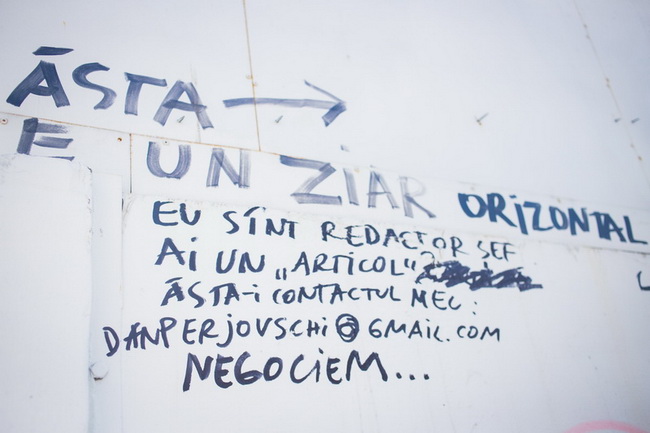 ĂSTA →
E UN ZIAR ORIZONTAL
EU SÎNT REDACTOR ȘEF
AI UN „ARTICOL"?
ĂSTA-I CONTACTUL MEU:
DANPERJOVSCHI@GMAIL.COM
NEGOCIEM...